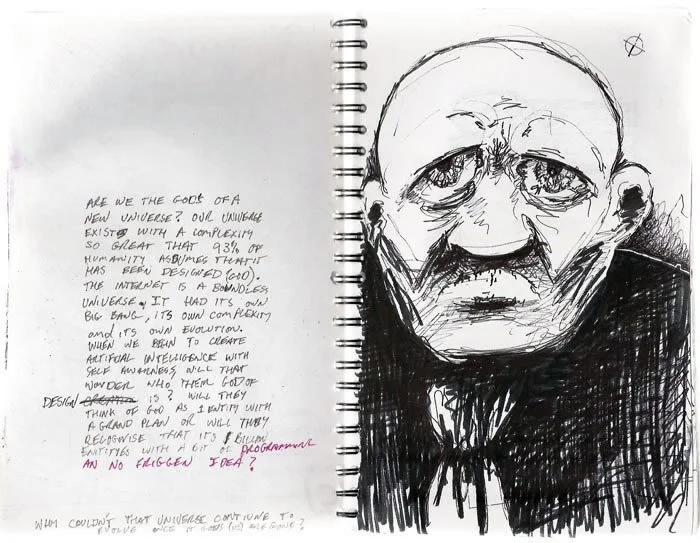 ARE WE THE GODS OF A
NEW UNIVERSE? OUR UNIVERSE
EXISTS WITH A COMPLEXITY
SO GREAT THAT 93% OF
HUMANITY ASSUMES THAT IT
HAS BEEN DESIGNED (GOD).
THE INTERNET IS A BOUNDLESS
UNIVERSE, IT HAD ITS OWN
BIG BANG, ITS OWN COMPLEXITY
and ITS OWN EVOLUTION.
WHEN WE BEIN TO CREATE
ARTIFICAL INTELLIGENCE WITH
SELF AWARNESS WILL THAT
WONDER WHO THEIR GOD OF
DESIGN CREATION IS? WILL THEY
THINK OF GOD AS 1 ENTITY WITH
A GRAND PLAN OR WILL THEY
RECOGNISE THAT ITS 1 BILLION
ENTITIES WITH A BIT OF PROGRAMMING
AN NO FRIGGEN IDEA?
WHY COULDN'T THAT UNIVERSE CONTINUE TO
EVOLVE ONCE IT GODS (US) ARE GONE?